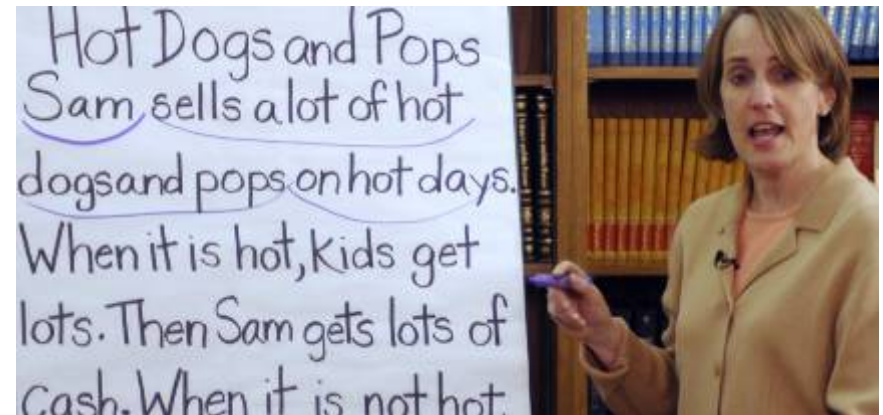 Hot Dogs and Pops
Sam sells a lot of hot
dogs and pops on hot days.
When it is hot, kids get
lots. Then Sam gets lots of
cash. When it is not hot,